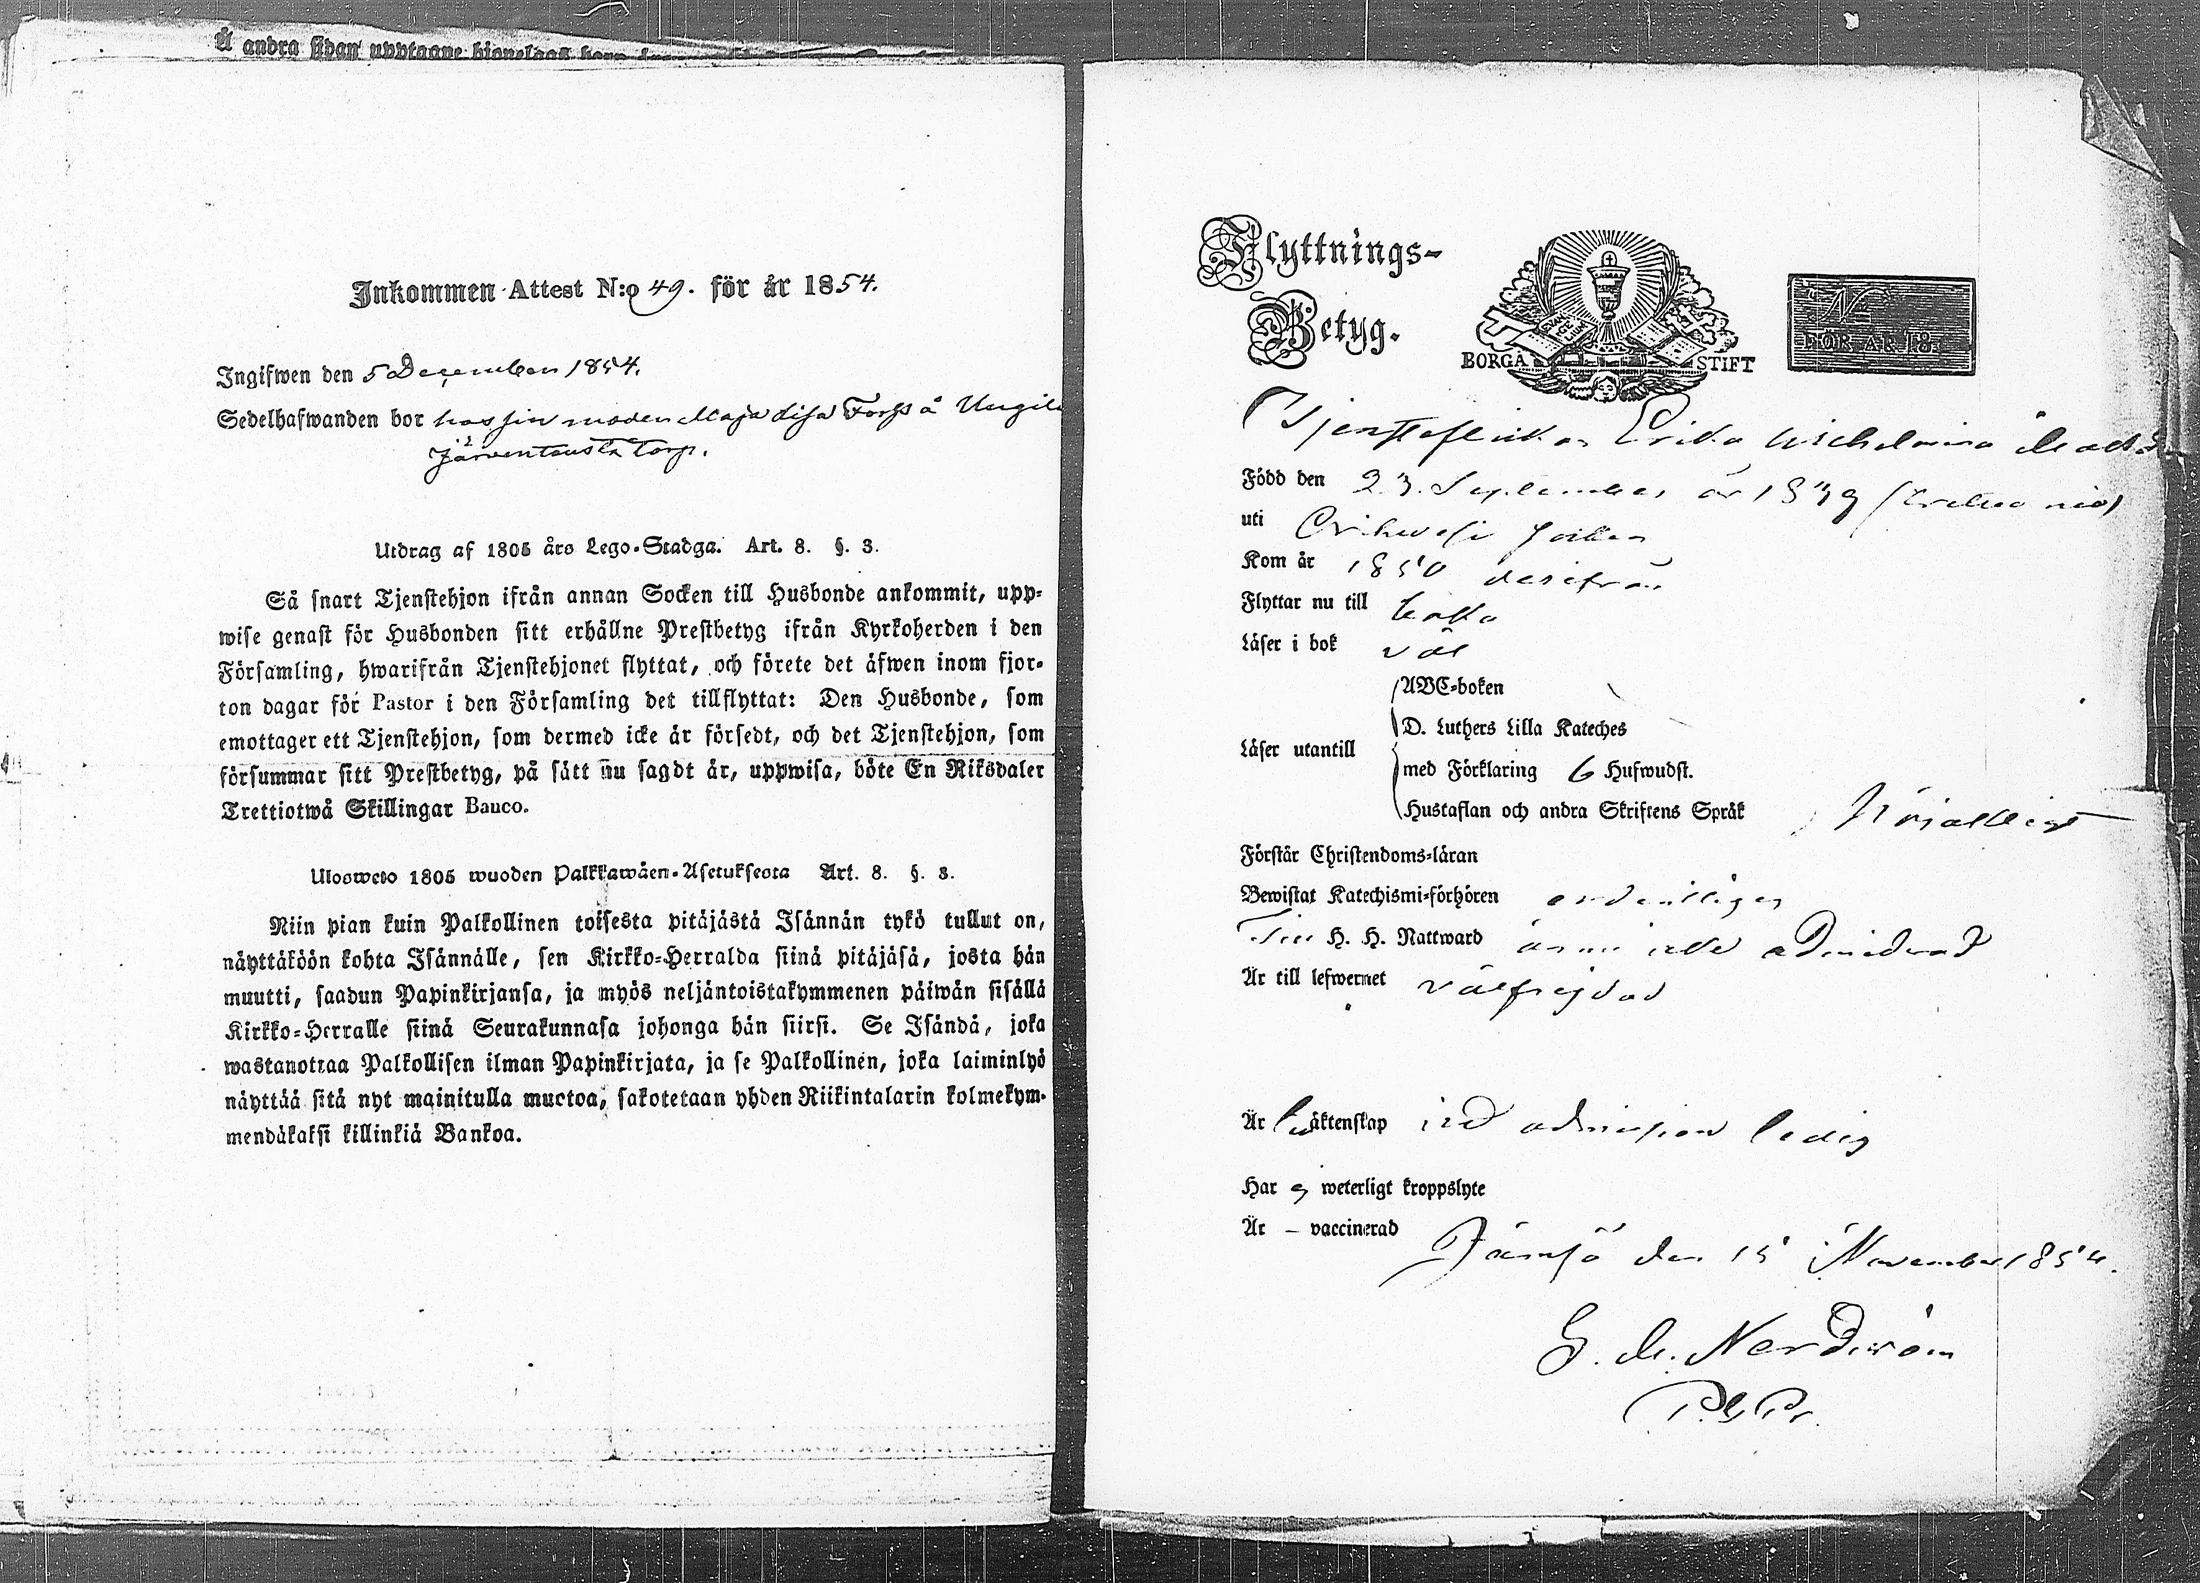 Å andra sidan upptagne
Inkommen Attest N:o 49. för år 1854.
Ingifwen den 5 December 1854.
Sedelhafwanden bor hos sin moder Maja Lisa Torp å
Järventausta torp.
Utdrag af 1805 års Lego-Stadga. Art. 8. §. 3.
Så snart Tjenstehjon ifrån annan Socken till Husbonde ankommit, upp-
wise genast för Husbonden sitt erhållne Prestbetyg ifrån Kyrkoherden i den
Församling, hwarifrån Tjenstehjonet flyttat, och förete det äfwen inom fjor-
ton dagar för Pastor i den Församling det tillflyttat: Den Husbonde, som
emottager ett Tjenstehjon, som dermed icke är försedt, och det Tjenstehjon, som
försummar sitt Prestbetyg, på sätt nu sagdt är, uppwisa, böte En Riksdaler
Trettiotwå Skillingar Banco.
Ulosweto 1805 wuoden Palkkawäen-Asetuksesta Art. 8. §. 3.
Niin pian kuin Palkollinen toisesta pitäjästä Isännän tykö tullut on,
näyttäköön kohta Isännälle, sen Kirkko-Herralda siinä pitäjäsä, josta hän
muutti, saadun Papinkirjansa, ja myös neljäntoistakymmenen päiwän sisällä
Kirkko-Herralle siinä Seurakunnasa johonga hän siirsi. Se Isändä, joka
wastanottaa Palkollisen ilman Papinkirjata, ja se Palkollinen, joka laiminlyö
näyttää sitä nyt mainitulla muotoa, sakotetaan yhden Riikintalarin kolmekym-
mendäkaksi killinkiä Bankoa.
Flyttnings-
Betyg.
EVANGELIUM
BORGÅ STIFT
N
FÖR ÅR 18
Tjensteflickan Erika Wilhelmina
Född den 23 September år 1839
uti Orihvesi socken
Kom år 1850 derifrån
Flyttar nu till
Läser i bok väl
Läser utantill
ABC-boken
D. Luthers Lilla Kateches
med Förklaring 6 Hufwudst.
Hustaflan och andra Skriftens Språk
Förstår Christendoms-läran Nöjaktigt
Bewistat Katechismi-förhören ordentligen
Till H. H. Nattward ännu icke admitterad
Är till lefwernet välfrejdad
Är äktenskap vid admission ledig
Har ej weterligt kroppslyte
Är – vaccinerad
Jämsä den 15 November 1854.